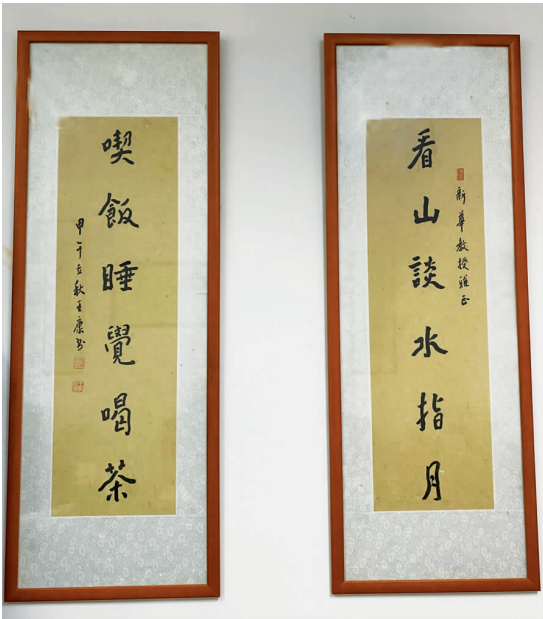 看山談水指月
新華教授雅正
喫飯睡覺喝茶
甲午立秋王康書